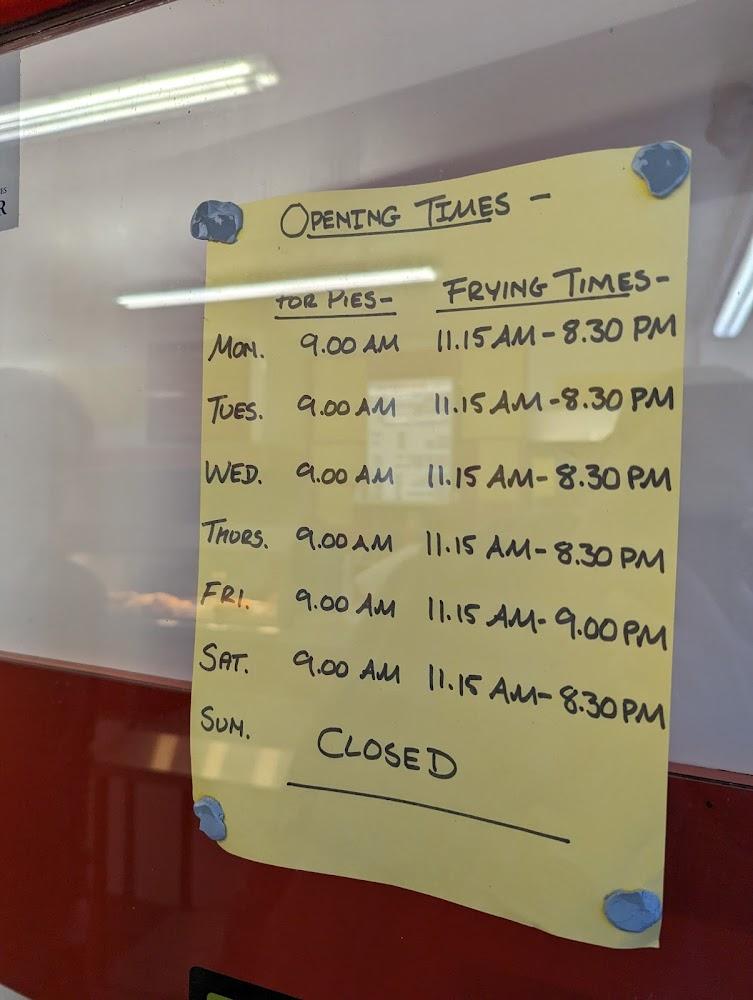 OPENING TIMES -
FOR PIES- FRYING TIMES-
MON. 9.00 AM 11.15 AM - 8.30 PM
TUES. 9.00 AM 11.15 AM - 8.30 PM
WED. 9.00 AM 11.15 AM - 8.30 PM
THURS. 9.00 AM 11.15 AM - 8.30 PM
FRI. 9.00 AM 11.15 AM - 9.00 PM
SAT. 9.00 AM 11.15 AM - 8.30 PM
SUN. CLOSED